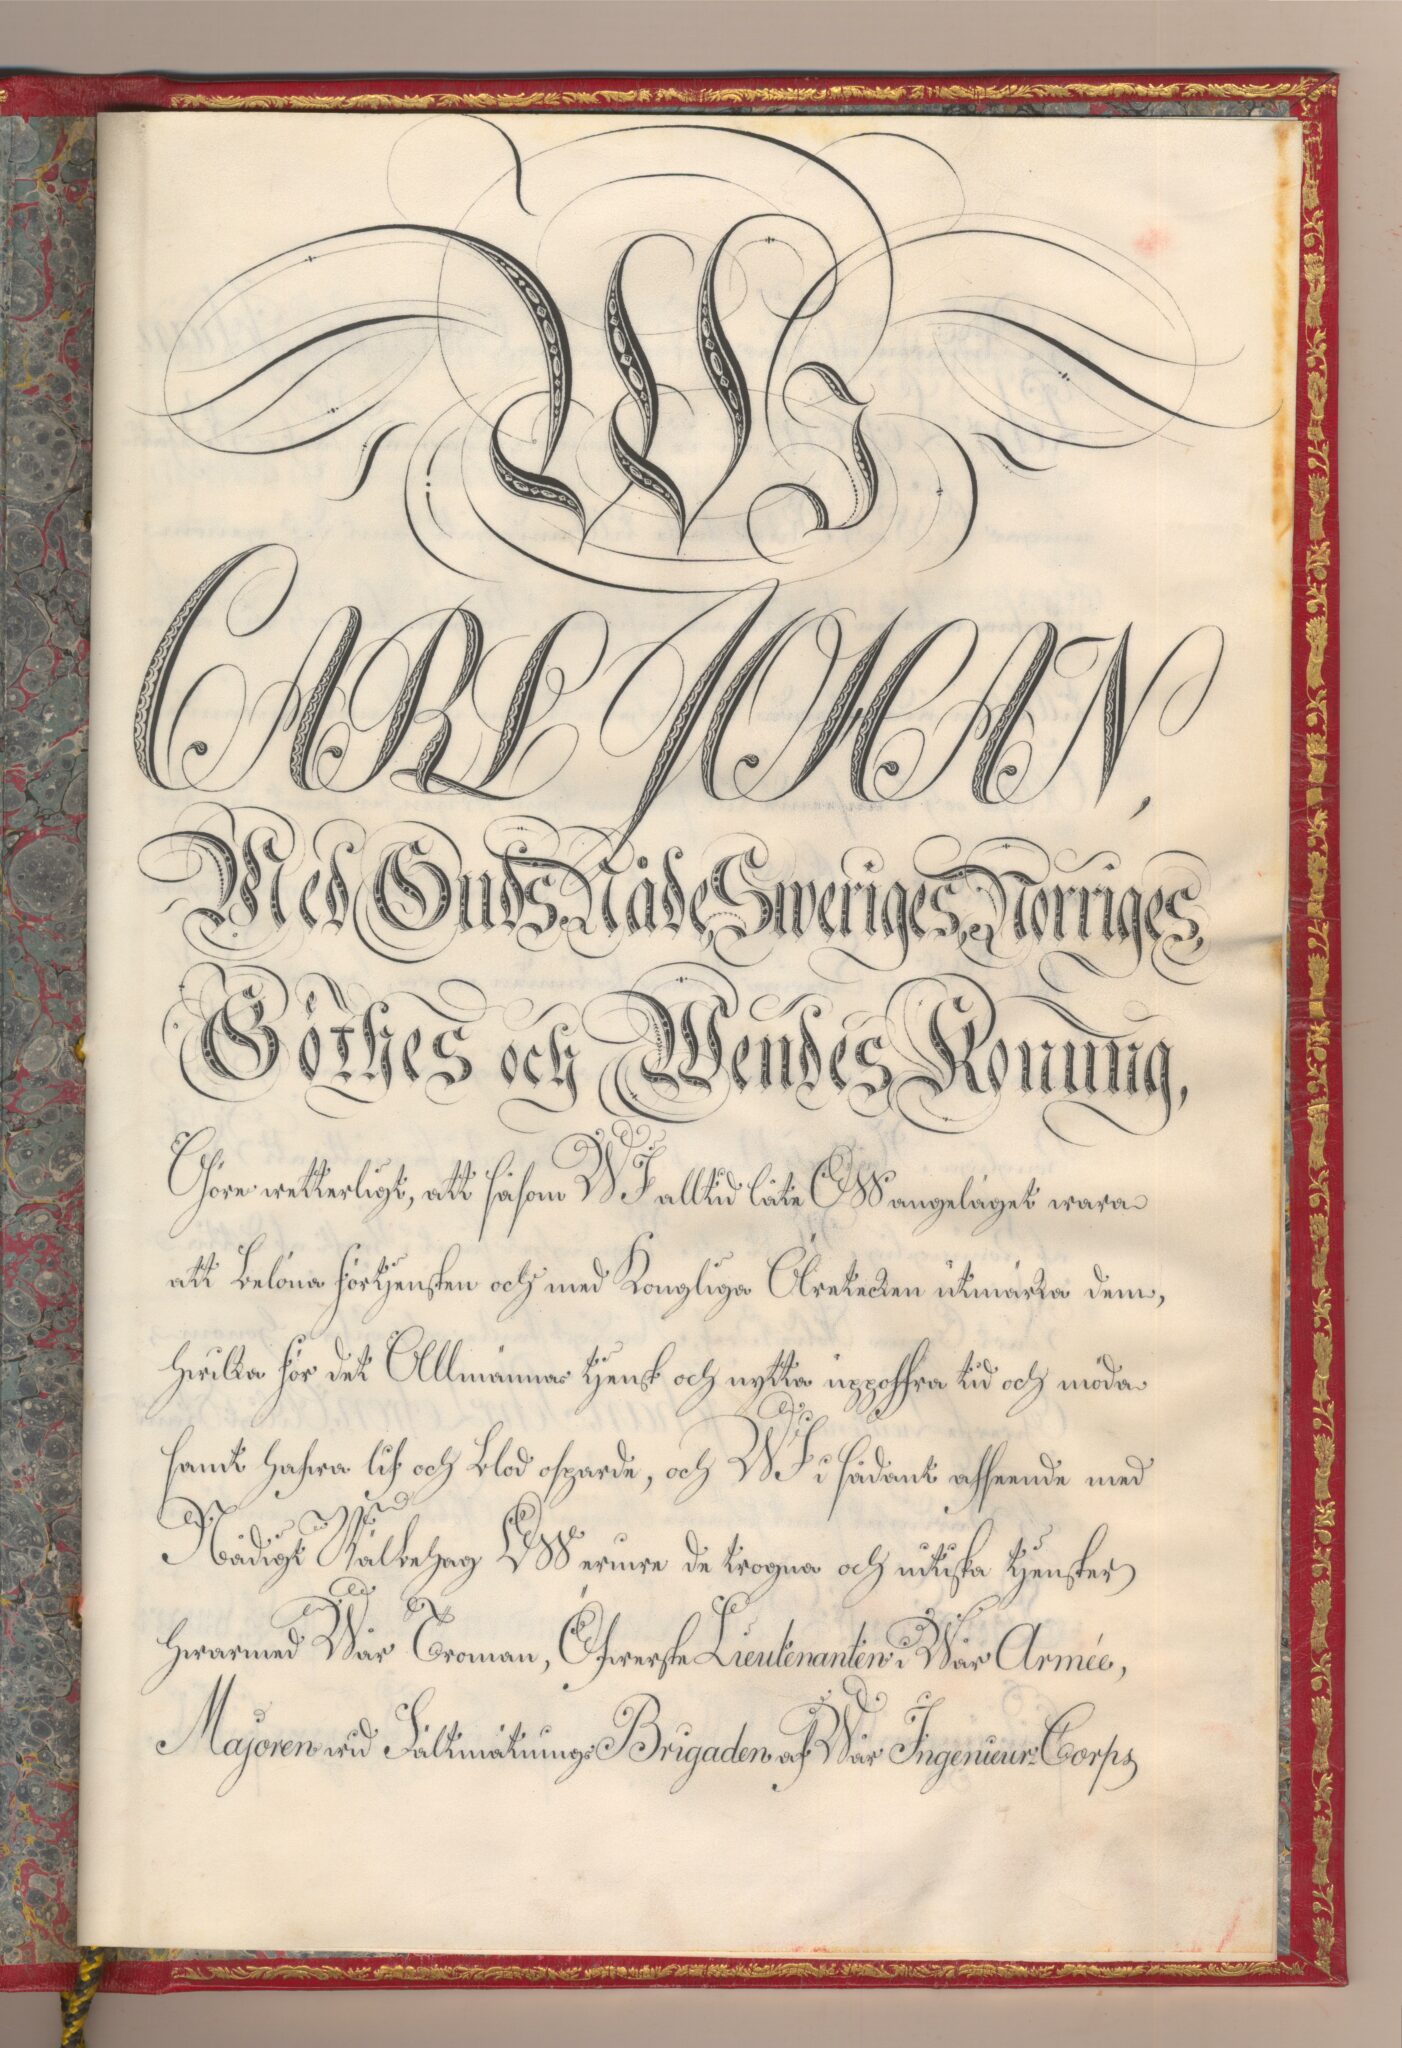 Wi
CARL JOHAN,
Med Guds Nåde, Sweriges, Norriges,
Göthes och Wendes Konung,
Göre wetterligt, att såsom WI alltid låtit OSS angeläget wara
att belöna förtjensten och med Kongliga Äretecken utmärka dem,
hwilka för det Allmännas tjenst och nytta uppoffra tid och möda
samt hafwa lif och blod ospards, och WI i sådant afseende med
Nådigt Wälbehag OSS erinre de trogna och nitiska tjenster
hwarmed Wår Troman, Öfwerste Lieutenanten i Wår Armée,
Majoren wid Fältmätnings Brigaden af Wår Ingenieur-Corps